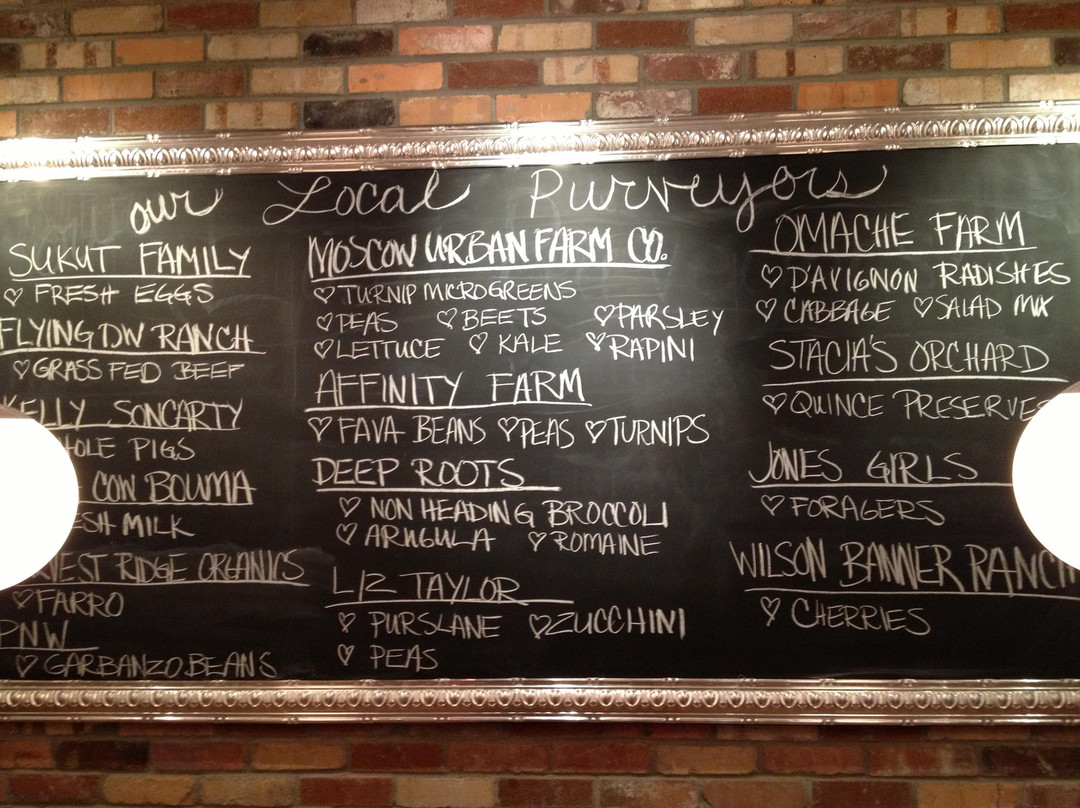 our Local Purveyors
SUKUT FAMILY
♡ FRESH EGGS
FLYING DW RANCH
♡ GRASS FED BEEF
KELLY SONCARTY
PIGS
COW BOUMA
MILK
RIDGE ORGANICS
♡ FARRO
PNW
♡ GARBANZO BEANS
MOSCOW URBAN FARM CO.
♡ TURNIP MICROGREENS
♡ PEAS ♡ BEETS ♡ PARSLEY
♡ LETTUCE ♡ KALE ♡ RAPINI
AFFINITY FARM
♡ FAVA BEANS ♡ PEAS ♡ TURNIPS
DEEP ROOTS
♡ NON HEADING BROCCOLI
♡ ARUGULA ♡ ROMAINE
LIZ TAYLOR
♡ PURSLANE ♡ ZUCCHINI
♡ PEAS
OMACHE FARM
♡ D'AVIGNON RADISHES
♡ CABBAGE ♡ SALAD MIX
STACIA'S ORCHARD
♡ QUINCE PRESERVES
JONES GIRLS
♡ FORAGERS
WILSON BANNER RANCH
♡ CHERRIES